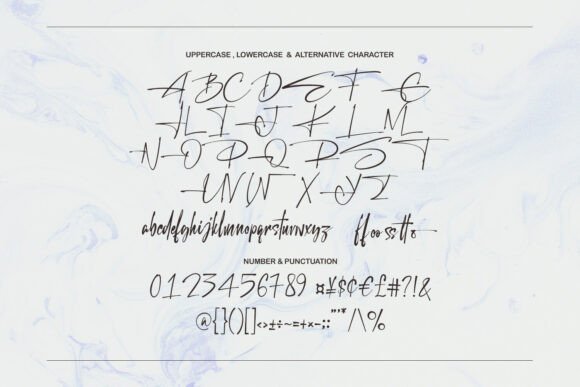 UPPERCASE , LOWERCASE & ALTERNATIVE CHARACTER
A B C D E F G
H I J K L M
N O P Q R S T
U V W X Y Z
abcdefghijklmnopqrstuvwxyz ff oo ss tt o
NUMBER & PUNCTUATION
0123456789 ¤¥$¢€£#?!&
@{}()[]<>±÷~=+×-;:"'*/\%